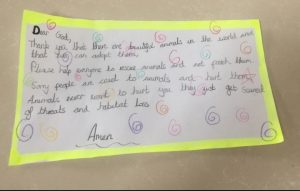 Dear God,
Thank you that there are beautiful animals in the world and
that we can adopt them.
Please help everyone to rescue animals and not poach them.
Sorry people are cruel to animals and hurt them.
Animals never want to hurt you they just get scared
of threats and habitat loss
Amen